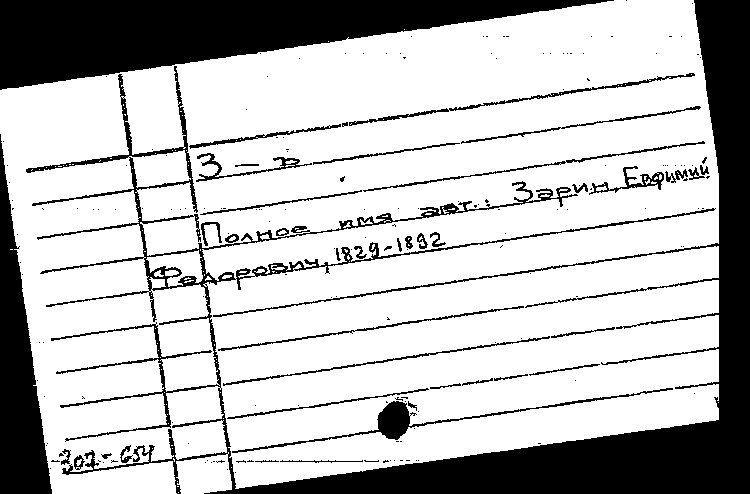 З – ъ
Полное имя авт.: Зарин, Евфимий
Федорович, 1829-1892
307-654